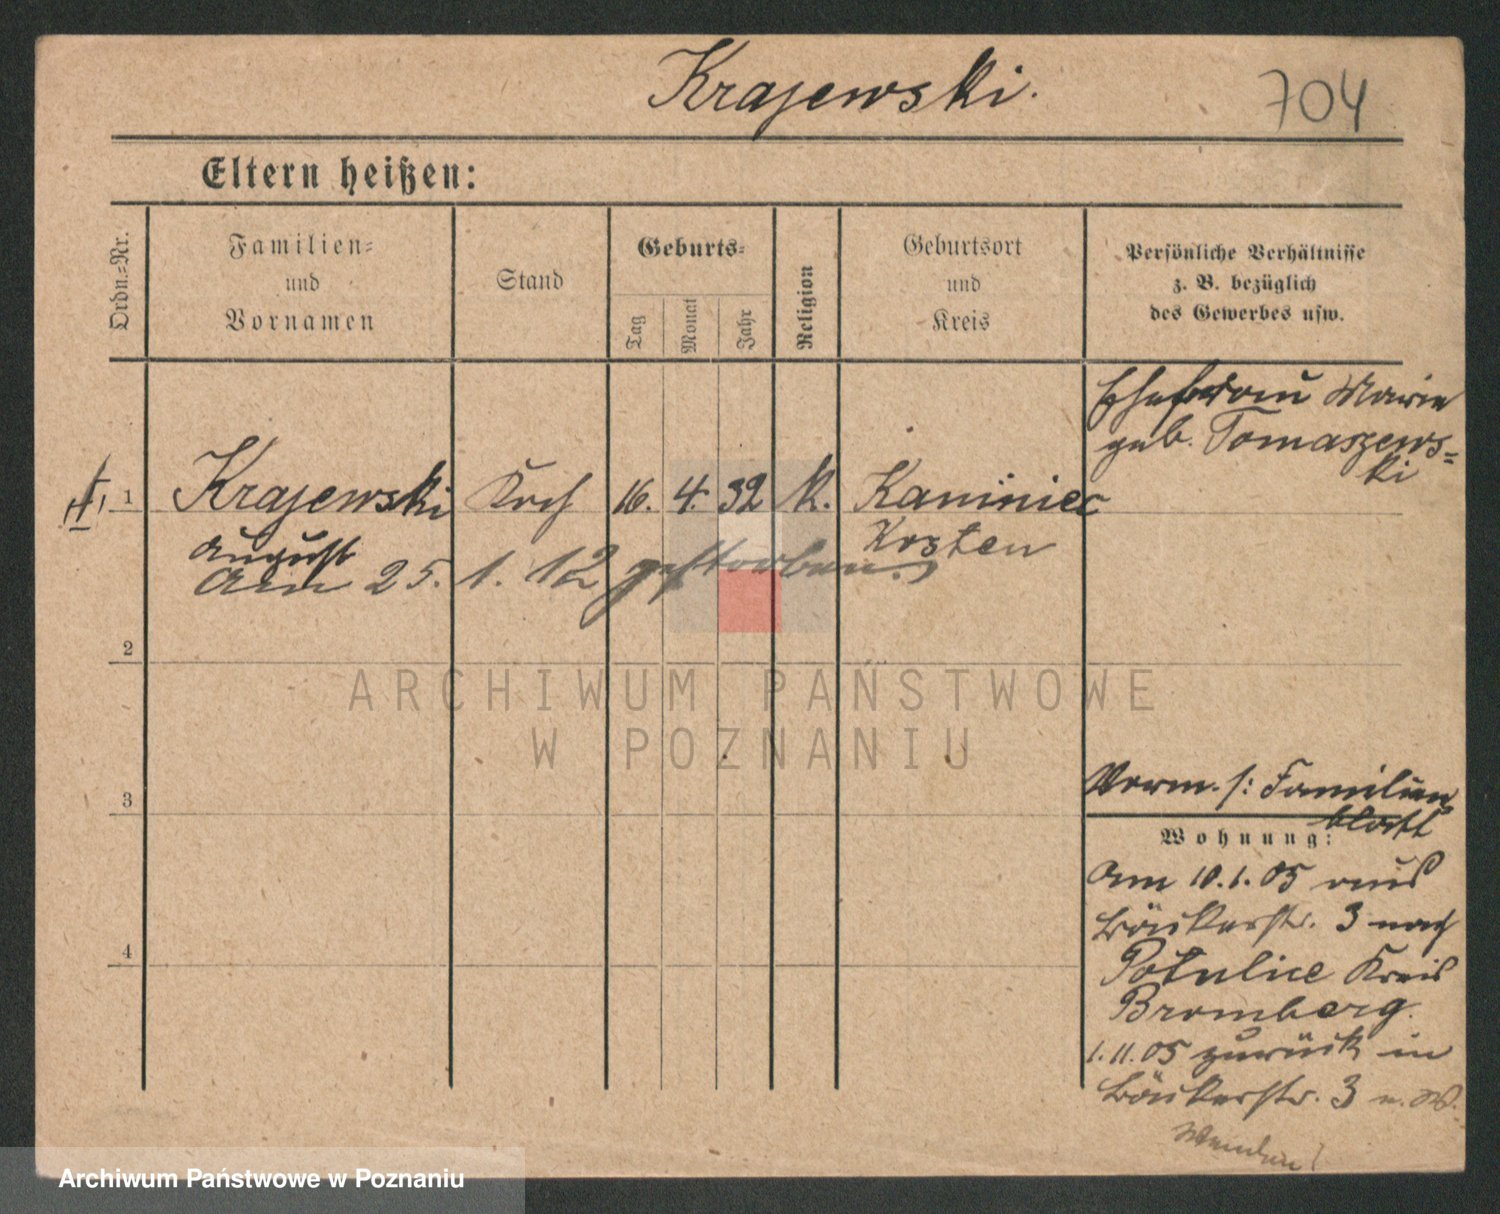 Krajewski.
704
Eltern heißen:
Ordn.-Nr.
Familien-
und
Vornamen
Stand
Geburts-
Tag
Monat
Jahr
Religion
Geburtsort
und
Kreis
Persönliche Verhältnisse
z. B. bezüglich
des Gewerbes usw.
Ehefrau Marie
geb. Tomaszews-
ki
1 Krajewski 16. 4. 32 K. Kaminiec
August Kosten
Am 25. 1. 12 gestorben.
2
ARCHIWUM PAŃSTWOWE
W POZNANIU
Verm. s: Familien
blatt
3
Wohnung:
Am 10.1.05 aus
Bäckerstr. 3 nach
4
Potulice Kreis
Bromberg.
1.11.05 zurück in
Bäckerstr. 3
Wenden!
Archiwum Państwowe w Poznaniu